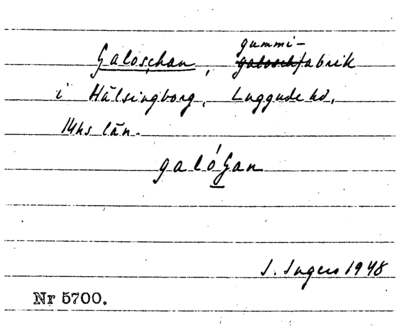 gummi-
Galoschan, galoschfabrik
i Hälsingborg, Luggude hd,
Mhs län.
galóʃan
I. Ingers 1948
Nr 5700.